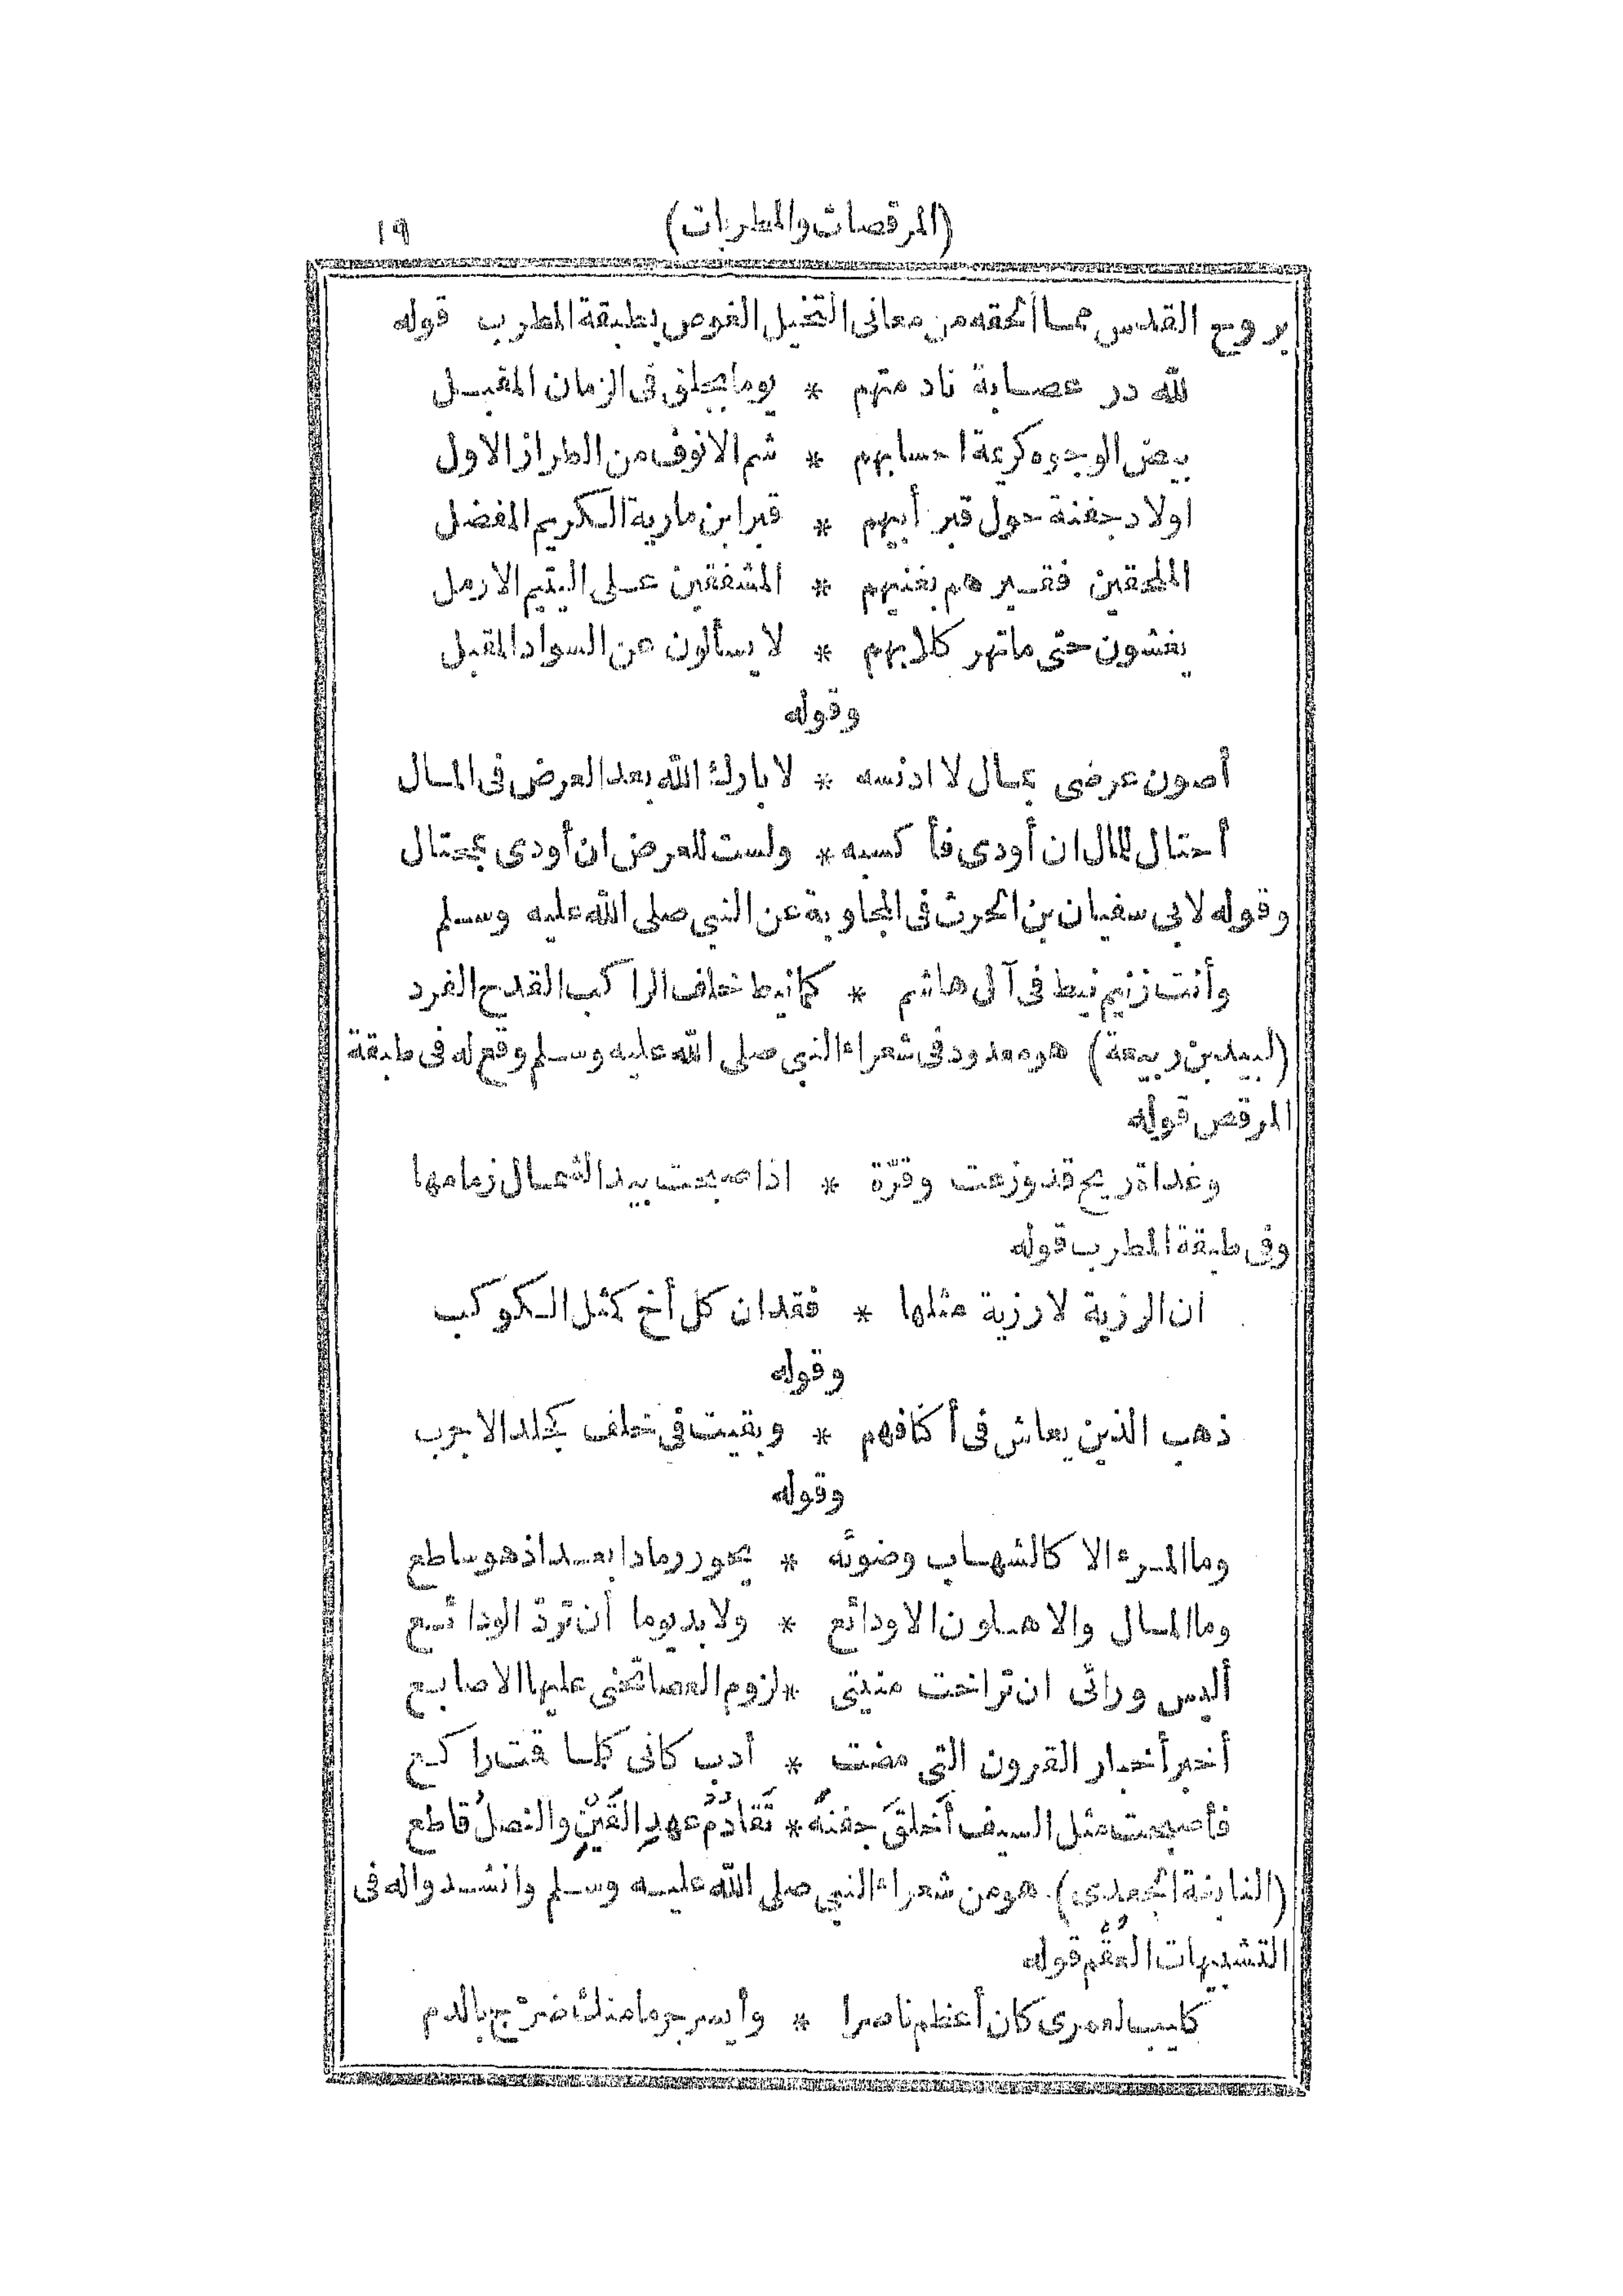 (المرقصات والمطربات) ١٩
بروح القدس مما ألحقه من معانى التخيل الغوص بطبقة المطرب قوله
لله در عصابة نادمتهم * يوما بجلق فى الزمان المقبل
بيض الوجوه كريمة احسابهم * شم الانوف من الطراز الاول
اولاد جفنة حول قبر أبيهم * قبر ابن مارية الكريم المفضل
الملحقين فقيرهم بغنيهم * المشفقين على اليتيم الارمل
يغشون حتى ماتهر كلابهم * لا يسألون عن السواد المقبل
وقوله
أصون عرضى بمال لا ادنسه * لا بارك الله بعد العرض فى المال
أحتال للمال ان أودى فأكسبه * ولست للعرض ان أودى بمحتال
وقوله لابى سفيان بن الحرث فى المجاوبة عن النبي صلى الله عليه وسلم
وأنت زنيم نيط فى آل هاشم * كما نيط خلف الراكب القدح الفرد
(لبيد بن ربيعة) هو معدود فى شعراء النبي صلى الله عليه وسلم وقع له فى طبقة
المرقص قوله
وغداة ريح قد وزعت وقرّة * اذا صبحت بيد الشمال زمامها
وفى طبقة المطرب قوله
ان الرزية لا رزية مثلها * فقدان كل أخ كمثل الكوكب
وقوله
ذهب الذين يعاش فى أكافهم * وبقيت فى خلف كجلد الاجرب
وقوله
وما المرء الا كالشهاب وضوئه * يحور رمادا بعد اذ هو ساطع
وما المال والاهلون الا ودائع * ولا بد يوما أن تردّ الودائع
أليس ورائى ان تراخت منيتى * لزوم العصا تحنى عليها الاصابع
أخبر أخبار القرون التى مضت * أدب كانى كلما قمت راكع
فأصبحت مثل السيف أَخلقَ جفنهُ * تَقادُمُ عهدِ القَيْنِ والنصلُ قاطع
(النابغة الجعدى) هو من شعراء النبي صلى الله عليه وسلم وانشدوا له فى
التشبيهات العُقَّم قوله
كليب لعمرى كان أعظم ناصرا * وأيسر جرما منك ضرّج بالدم